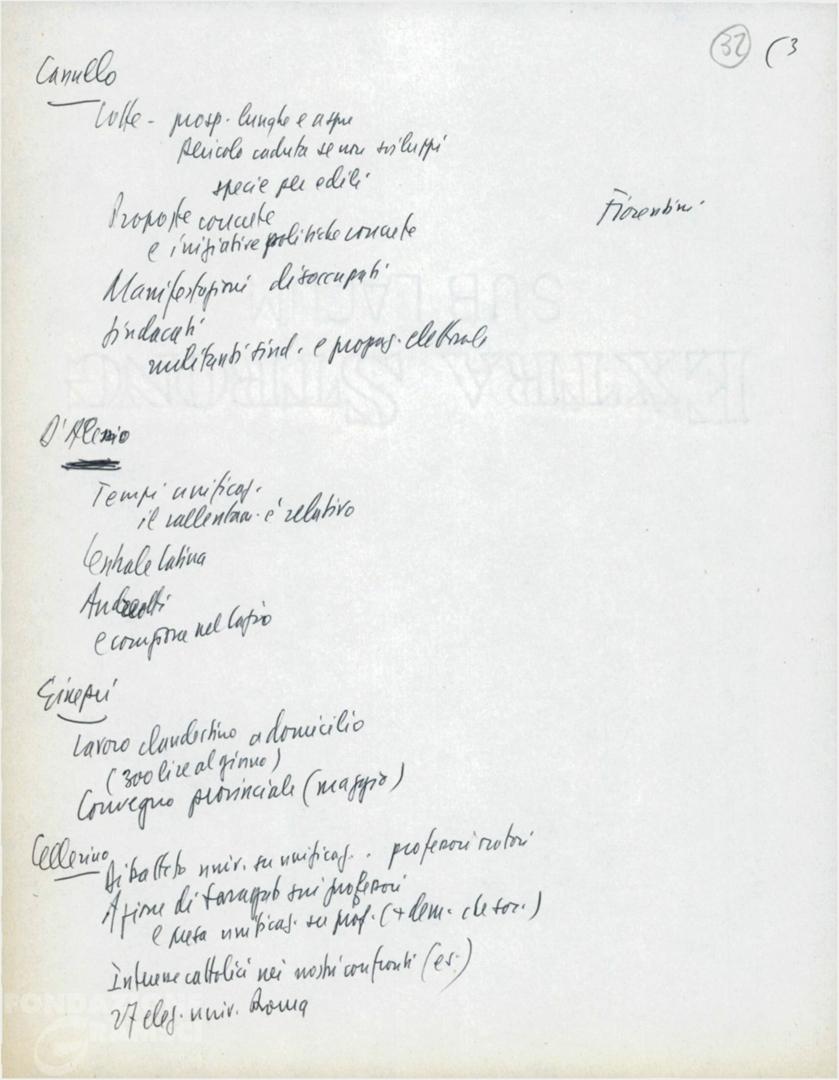 32 (3
Canullo
Lotte - prosp. lunghe e aspre
Pericolo caduta se non sviluppi
specie per edili
Fiorentini
Proposte concrete
e iniziative politiche concrete
Manifestazioni disoccupati
Sindacati
militanti sind. e propag. elettorale
D'Alessio
Tempi unificaz.
il rallentam. è relativo
Centrale Latina
Andreotti
e corruzione nel Lazio
Ginepri
Lavoro clandestino a domicilio
(300 lire al giorno)
Convegno provinciale (maggio)
Cellerino
Dibattito univ. su unificaz. . professori
Azione di Saragat sui professori
e presa unificaz. su prof. (+ dem. che soc.)
Interesse cattolici nei nostri confronti (es.)
27 elez. univ. Roma
EXTRA STRONG
FONDAZIONE
GRAMSCI